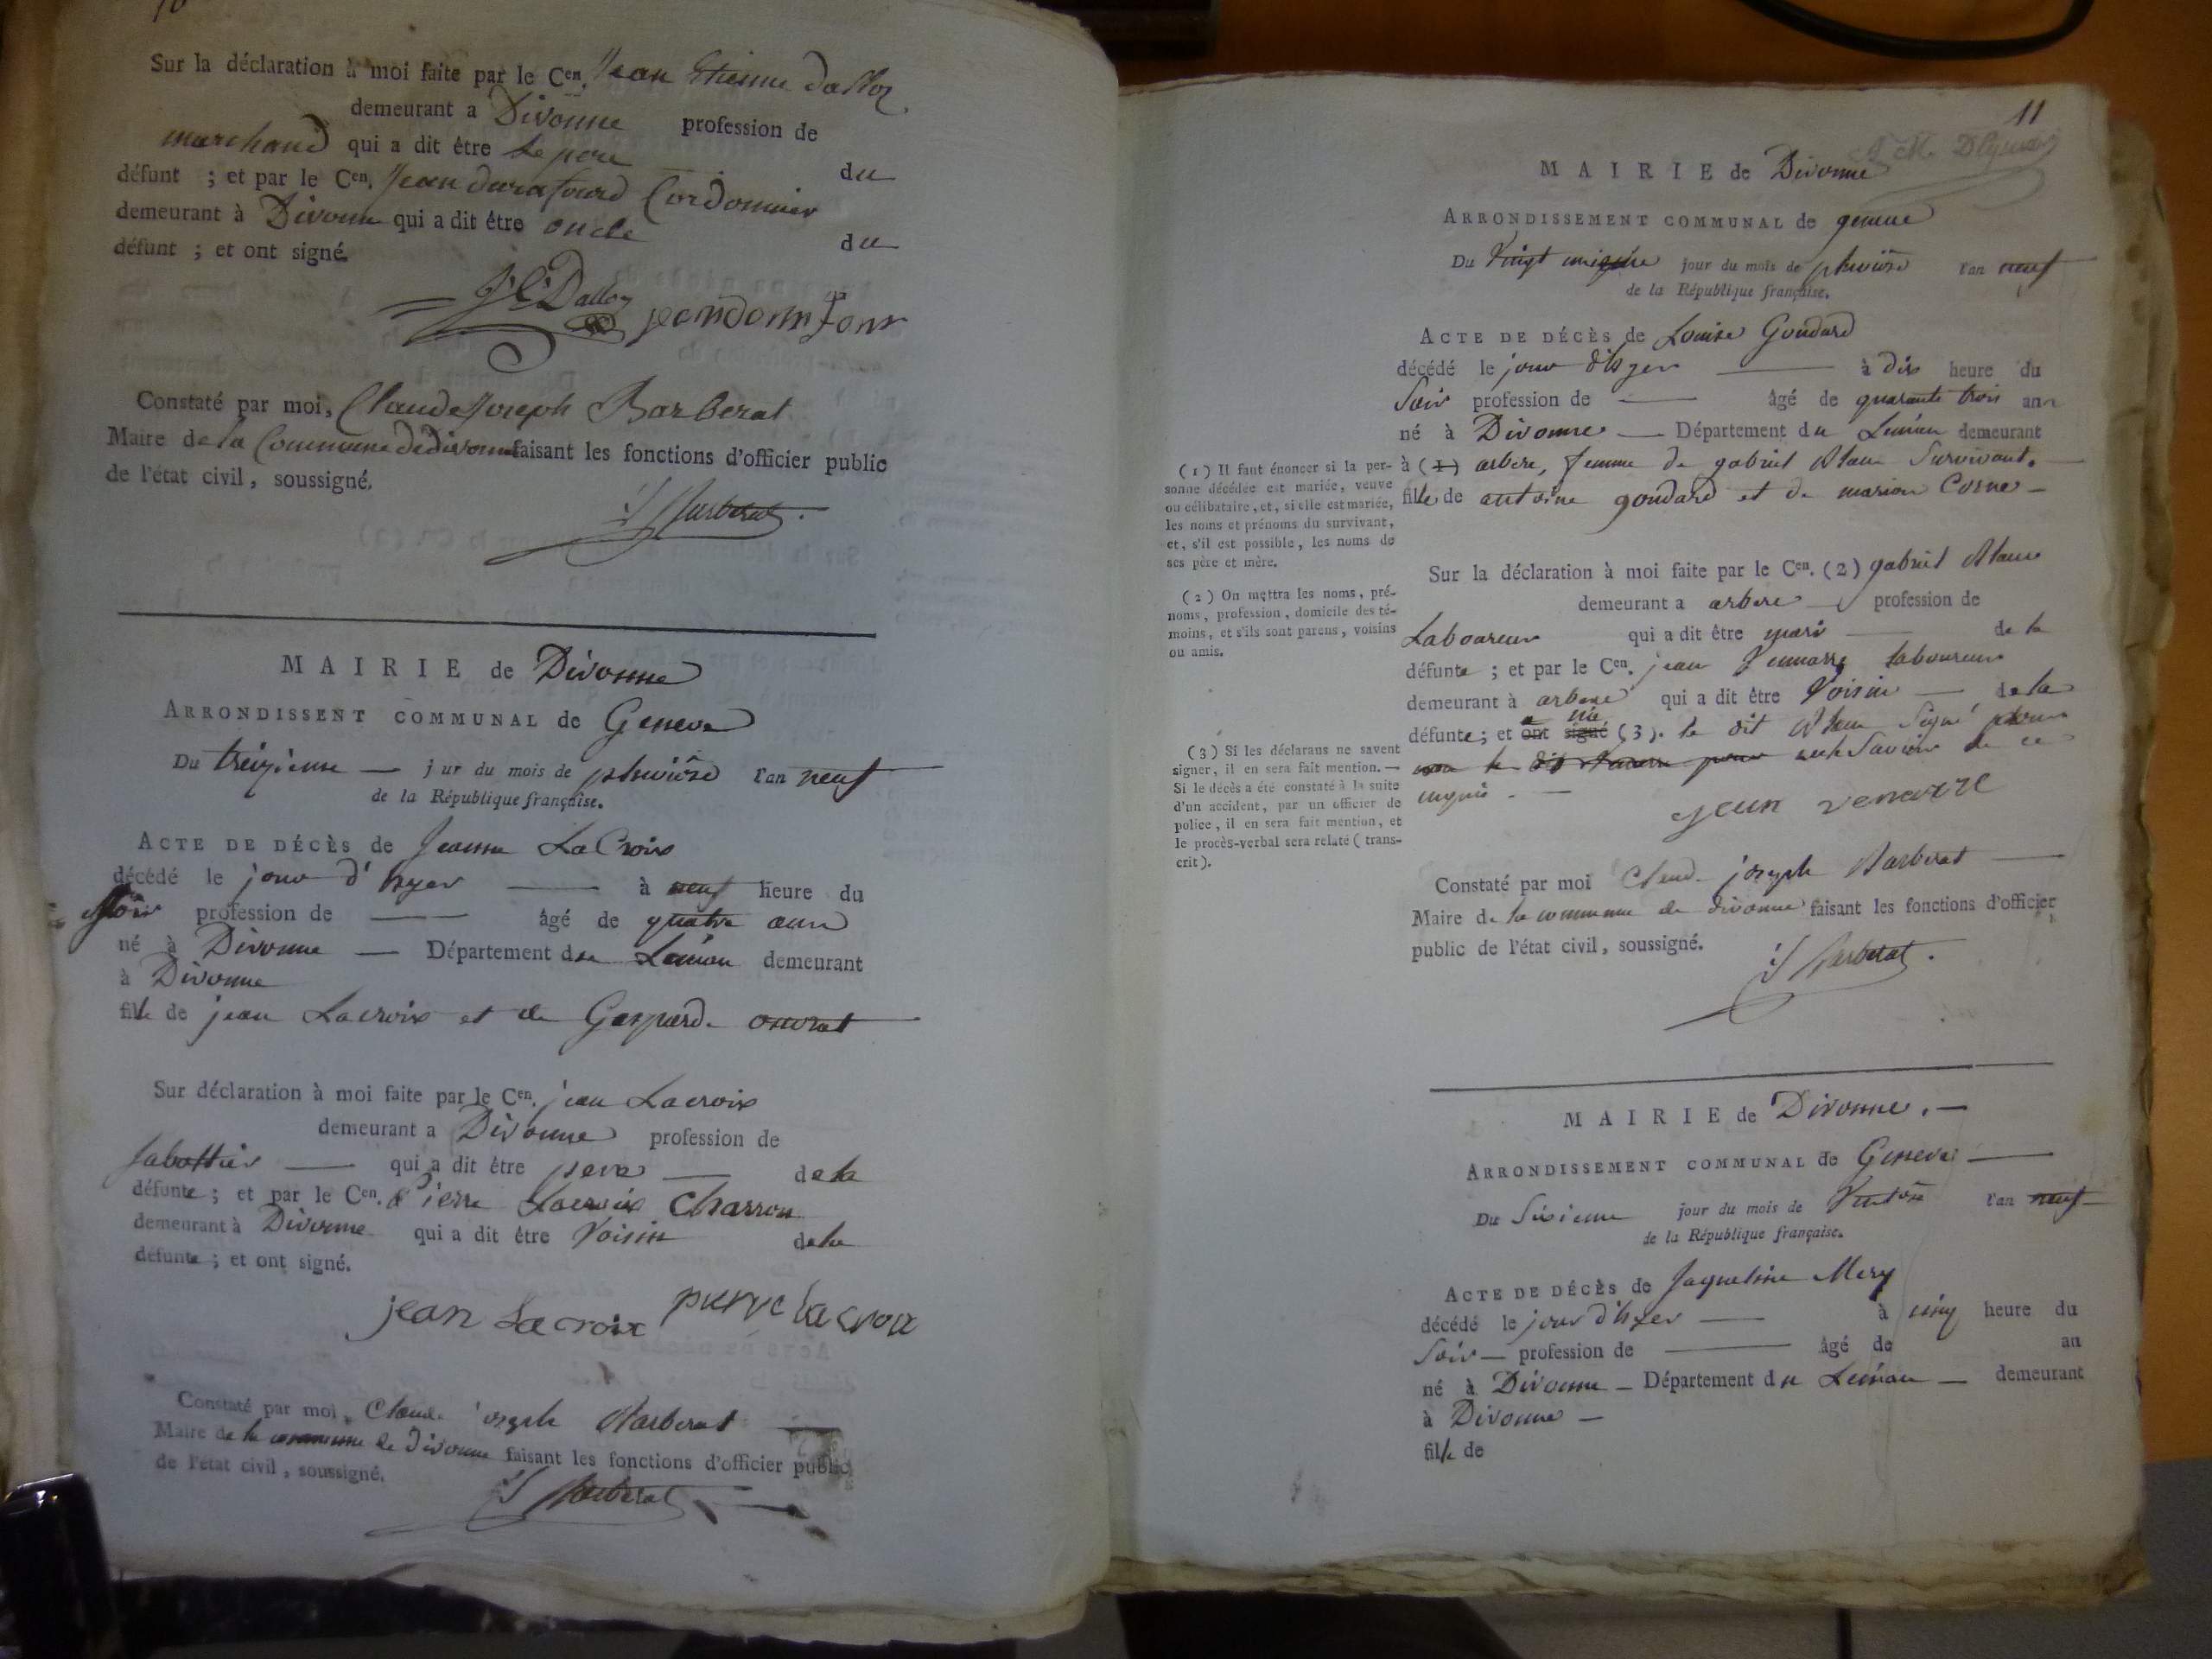 Sur la déclaration à moi faite par le Cen. Jean Etienne Dalloz
demeurant a Divonne profession de
marchand qui a dit être le pere du
défunt ; et par le Cen. Jean durafourd Cordonnier
demeurant à Divonne qui a dit être oncle du
défunt ; et ont signé.
J E Dalloz
Constaté par moi, Claude Joseph Barberat
Maire de la Commune de divonne faisant les fonctions d'officier public
de l'état civil, soussigné.
Barberat
MAIRIE de Divonne
ARRONDISSENT COMMUNAL de Geneve
Du treizieme — j ur du mois de pluviôse l'an neuf
de la République française.
ACTE DE DÉCÈS de Jeanne LaCroix
décédé le jour d'hyer — à neuf heure du
soir profession de — âgé de quatre ans
né à Divonne — Département du Léman demeurant
à Divonne
fille de jean Lacroix et de Gasparde
Sur déclaration à moi faite par le Cen. jean Lacroix
demeurant a Divonne profession de
Sabottier — qui a dit être pere — de la
défunte ; et par le Cen. Pierre Lacroix Charron
demeurant à Divonne qui a dit être Voisin de la
défunte ; et ont signé.
jean Lacroix pierre lacroix
Constaté par moi, Claude joseph Barberat —
Maire de la commune de divonne faisant les fonctions d'officier public
de l'état civil, soussigné.
Barberat
11
MAIRIE de Divonne
ARRONDISSEMENT COMMUNAL de geneve
Du Vingt jour du mois de pluviôse l'an neuf
de la République française.
ACTE DE DÉCÈS de Louise Goudard
décédé le jour d'hyer — à dix heure du
Soir profession de — âgé de quarante trois ans
né à Divonne — Département du Léman demeurant
à (1) arbere, femme de gabriel Survivant. —
fille de antoine goudard et de marion Corne —
(1) Il faut énoncer si la per-
sonne décédée est mariée, veuve
ou célibataire, et, si elle est mariée,
les noms et prénoms du survivant,
et, s'il est possible, les noms de
ses père et mère.
Sur la déclaration à moi faite par le Cen. (2) gabriel
demeurant a arbere — profession de
Laboureur qui a dit être mari — de la
défunte ; et par le Cen. jean laboureur
demeurant à arbere qui a dit être Voisin — de la
défunte ; et ont signé (3). le dit Signé
de ce
enquis. —
(2) On mettra les noms, pré-
noms, profession, domicile des té-
moins, et s'ils sont parens, voisins
ou amis.
(3) Si les déclarans ne savent
signer, il en sera fait mention. —
Si le décès a été constaté à la suite
d'un accident, par un officier de
police, il en sera fait mention, et
le procès-verbal sera relaté (trans-
crit).
jean
Constaté par moi Claude joseph Barberat —
Maire de la commune de divonne faisant les fonctions d'officier
public de l'état civil, soussigné.
Barberat.
MAIRIE de Divonne. —
ARRONDISSEMENT COMMUNAL de Geneve —
Du Sixieme jour du mois de Ventôse l'an neuf
de la République française.
ACTE DE DÉCÈS de Jaqueline Mery
décédé le jour d'hyer — à cinq heure du
Soir — profession de — âgé de an
né à Divonne — Département du Léman — demeurant
à Divonne —
fille de